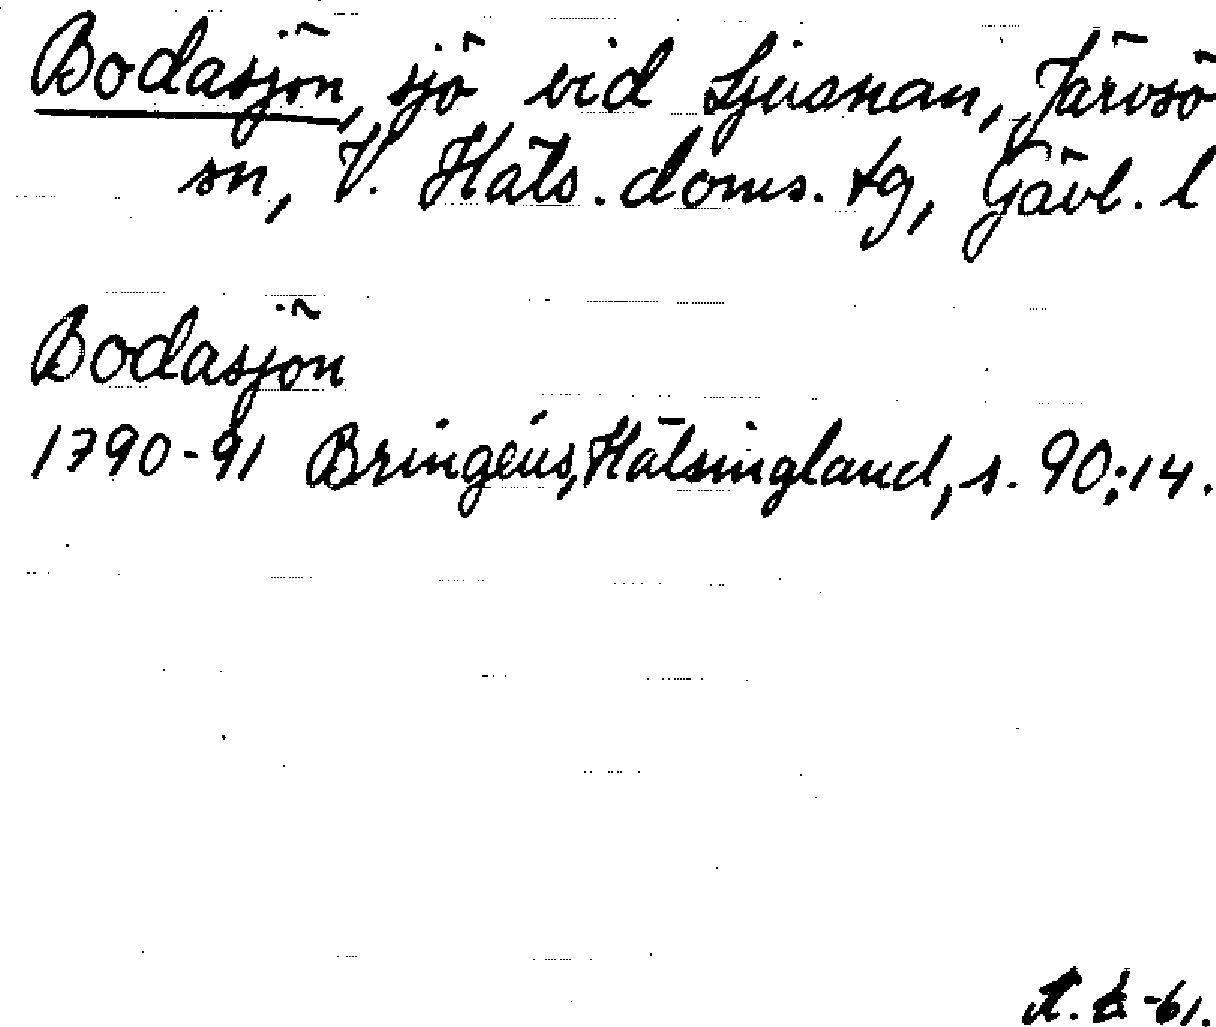 Bodasjön, sjö vid Ljusnan, Järvsö
sn, V. Häls. doms. tg, Gävl. l
Bodasjön
1790-91 Bringéus, Hälsingland, s. 90:14.
-61.